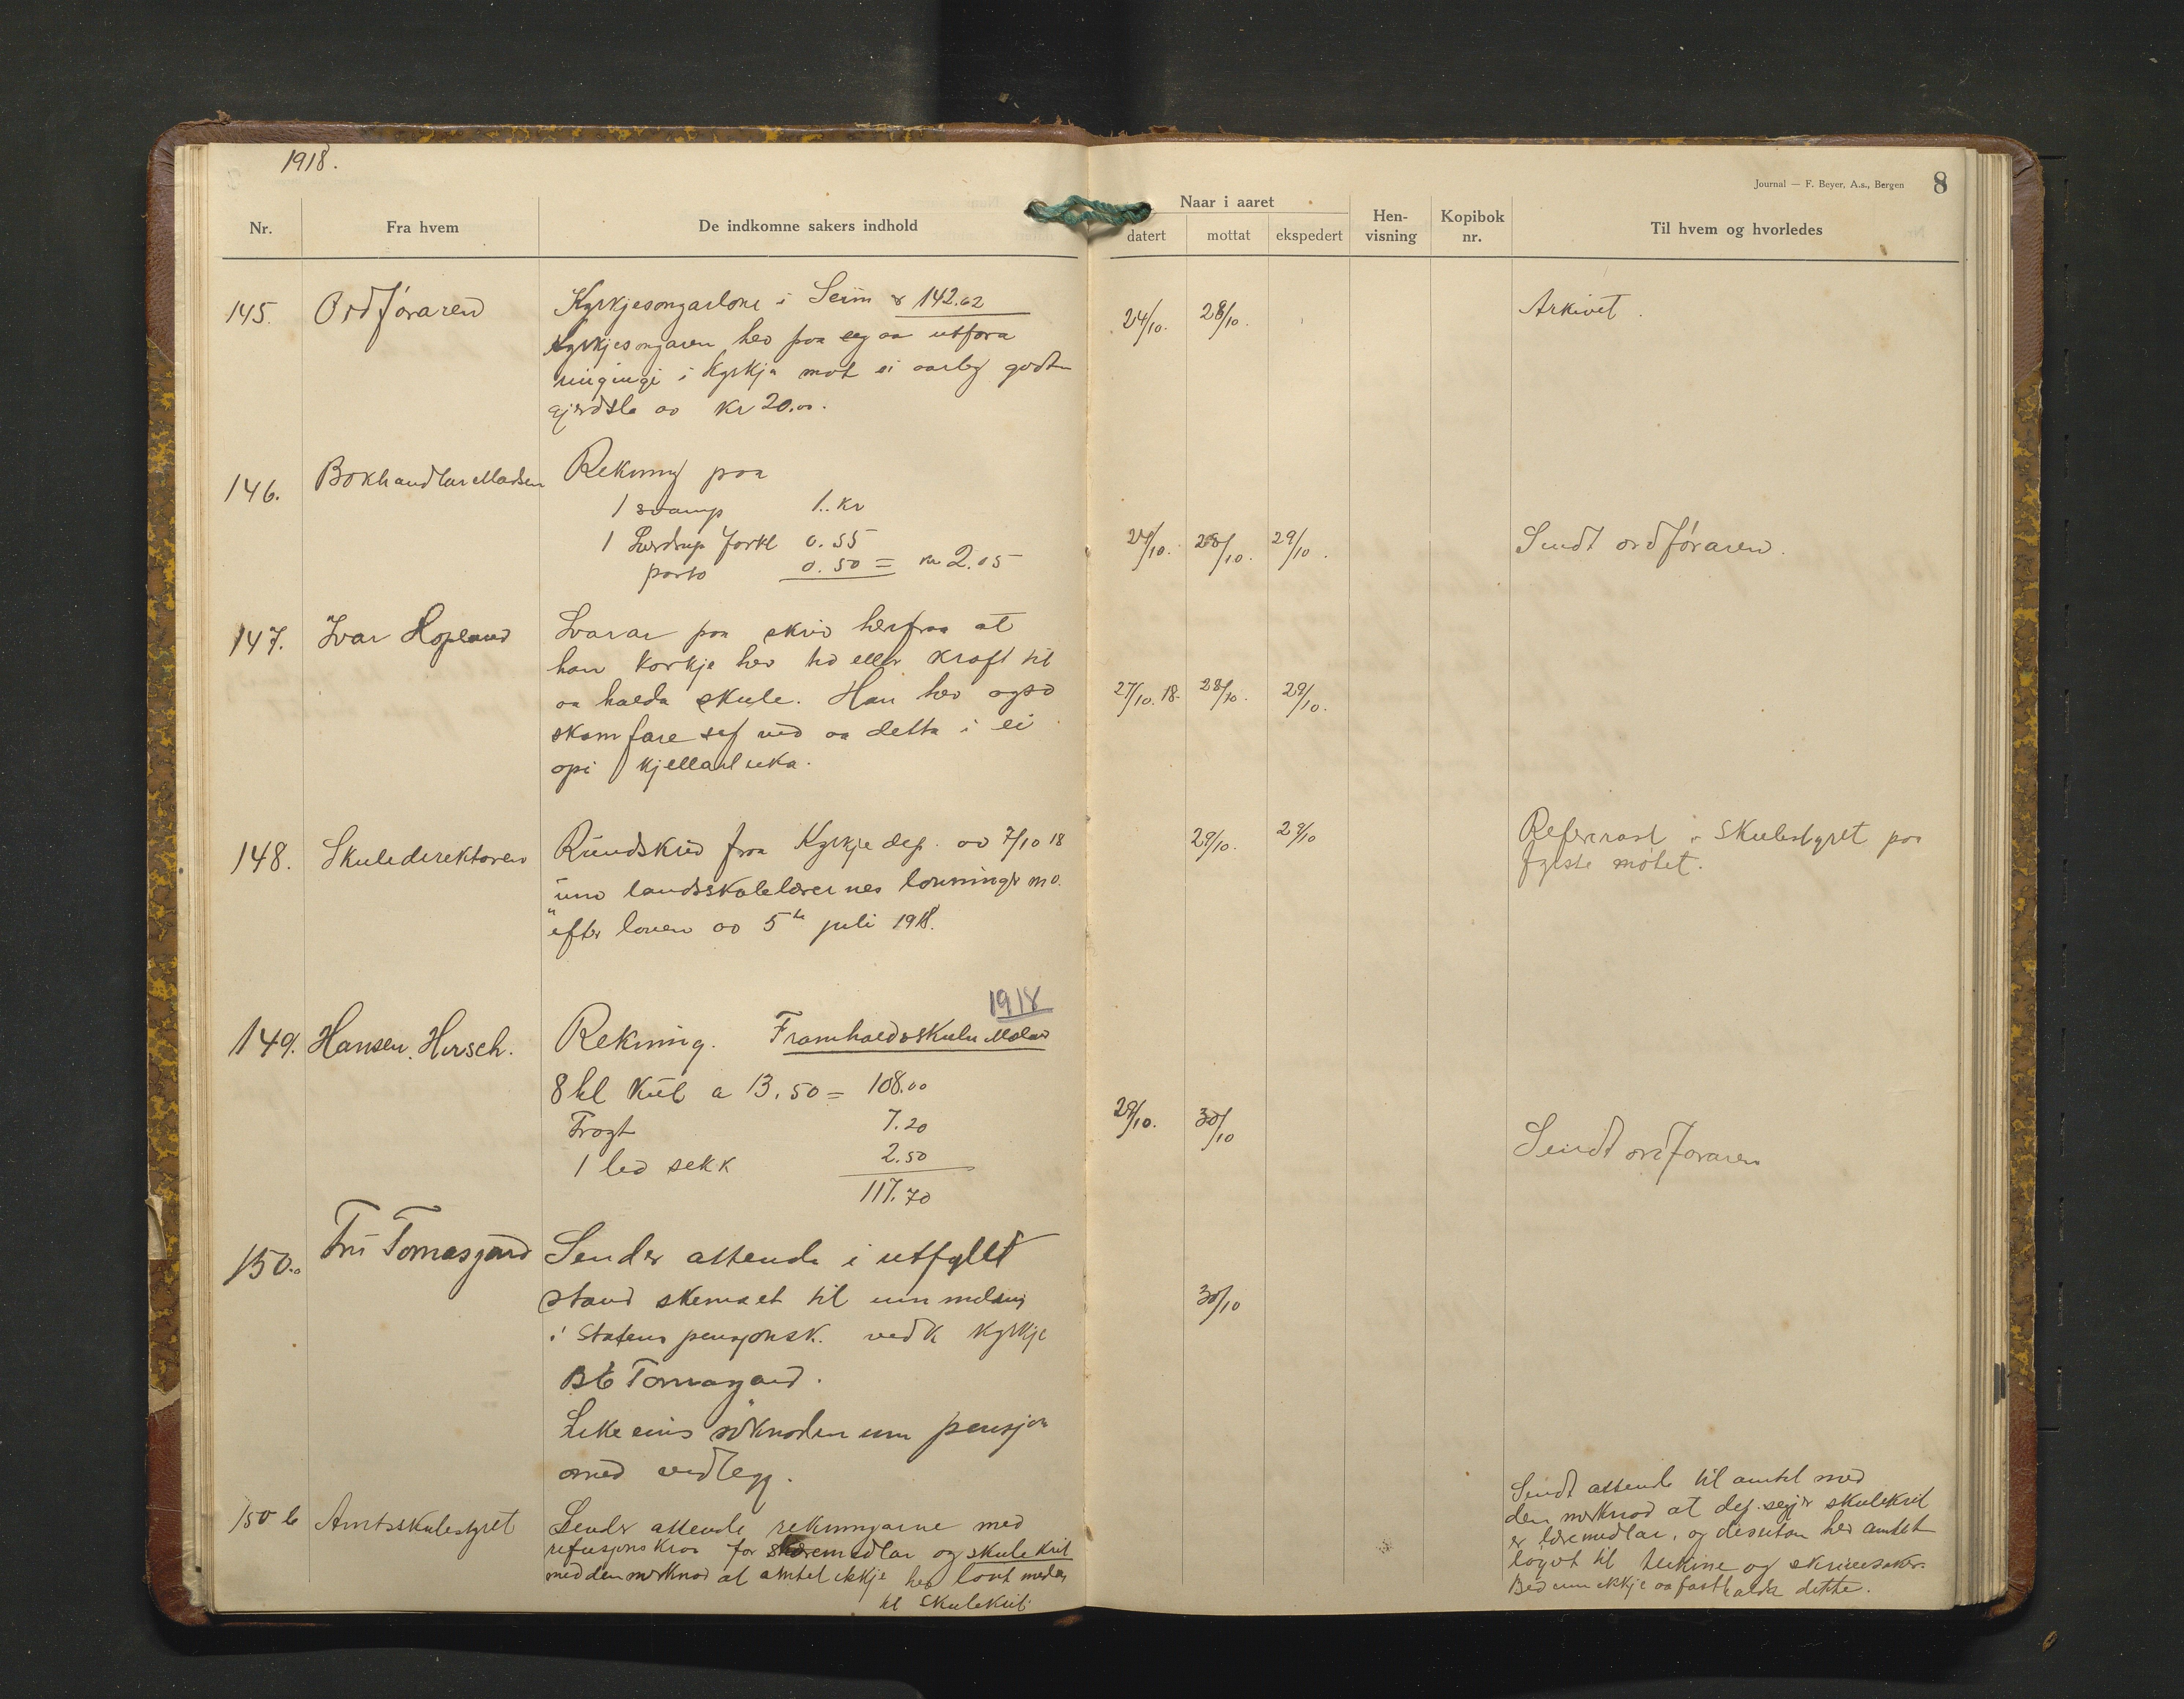 1918.
Journal — F. Beyer, A.s., Bergen 8
Nr. Fra hvem De indkomne sakers indhold Naar i aaret datert mottat ekspedert Hen-visning Kopibok nr. Til hvem og hvorledes
145. Ordføraren Kyrkjesongarløni i Seim 142.62 24/10. 28/10. Arkivet.
Kyrkjesongaren hev paa seg aa utføra
ringingi i Kyrkja mot ei aarleg godt-
gjerdsle av kr 20.00.
146. Bokhandlar Madsen Rekning paa
1 svamp 1.. kr
1 forkl 0.55 24/10. 28/10. 29/10. Sendt ordføraren.
porto 0.50 = kr 2.05
147. Ivar Hopland Svarar paa skriv herfraa at
han korkje hev tid eller kraft til
aa halda skule. Han hev ogso 27/10. 18. 28/10. 29/10.
skamfare seg ved aa detta i ei
opi kjellarluka.
148. Skuledirektøren Rundskriv fraa Kyrkjedep. av 7/10 18 29/10. 29/10 Refererast i Skulestyret paa
fyrste møtet.
um landsskolelærernes lønninger m.v.
efter loven av 5te juli 1918.
1918
149. Hansen, Hirsch. Rekning. Framhaldsskulen
8 hl kul a 13.50 = 108.00
Fragt 7.20 29/10. 30/10 Sendt ordføraren
1 sekk 2.50
117.70
150.a Fru Tomasgard Sender attende i utfyllt
stand skemaet til innmelding 30/10
i Statens pensjonsk. ved k kyrkje
Tomasgard.
Likeeins søknaden um pensjon
med vedlegg.
150 b Amtsskulestyret Sender attende rekningarne med
refusjonskrav for læremidlar og skulekrit
med den merknad at amtet ikkje hev lovt midlar
til skulekrit.
Sendt attende til amtet med
den merknad at dep. segjer skulekrit
er læremidlar, og desutan hev amtet
løyvt til teikne og skrivesaker.
Bed um ikkje aa fasthalda dette.